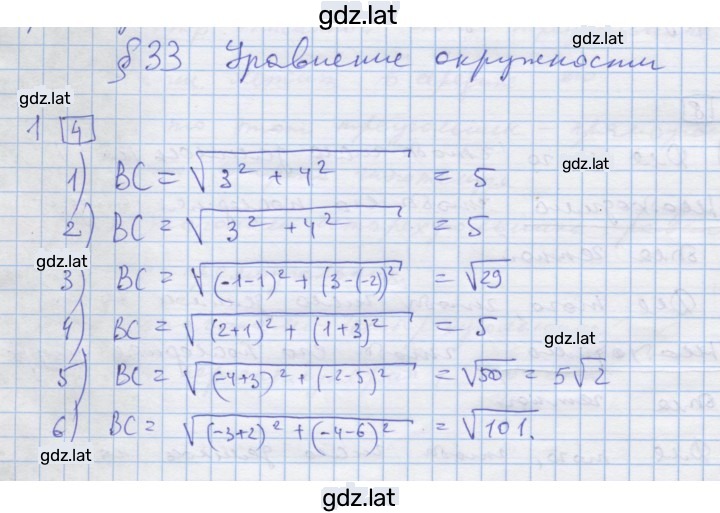 gdz.lat
§ 33 Уравнение окружности
gdz.lat
gdz.lat
1 4
gdz.lat
1) BC = √(3² + 4²) = 5
2) BC = √(3² + 4²) = 5
gdz.lat
3) BC = √((-1-1)² + (3-(-2))²) = √29
4) BC = √((2+1)² + (1+3)²) = 5
gdz.lat
5) BC = √((-4+3)² + (-2-5)²) = √50 = 5√2
6) BC = √((-3+2)² + (-4-6)²) = √101.
gdz.lat
gdz.lat
gdz.lat